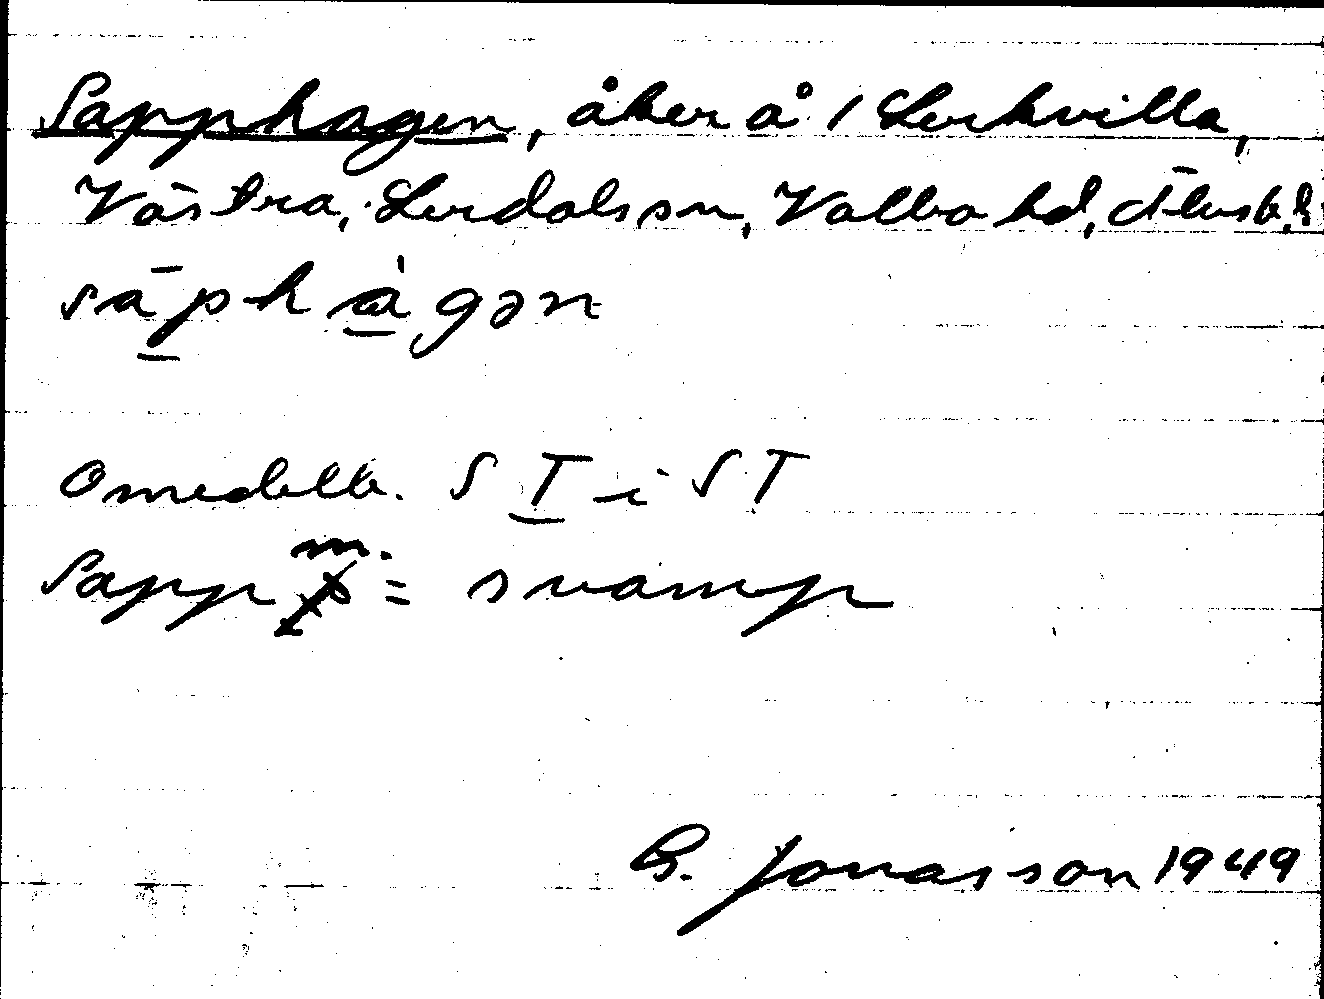 Sapphagen, åker å 1 Lerkvilla,
Västra, Lerdals sn, Valbo hd, Älvsb. l.
säphàgən
Omedelb. S T i S T
Sapp m. = svamp
G. Jonasson 1949